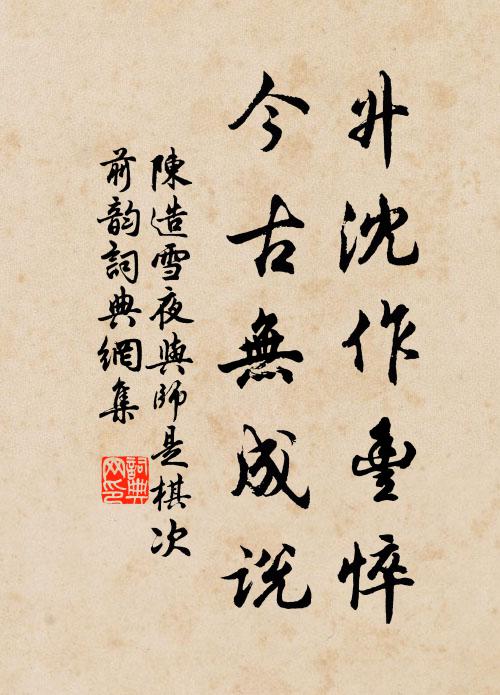 升沈作豐悴
今古無成說
陳造雪夜與師是棋次
前韵詞典網集
詞典网印